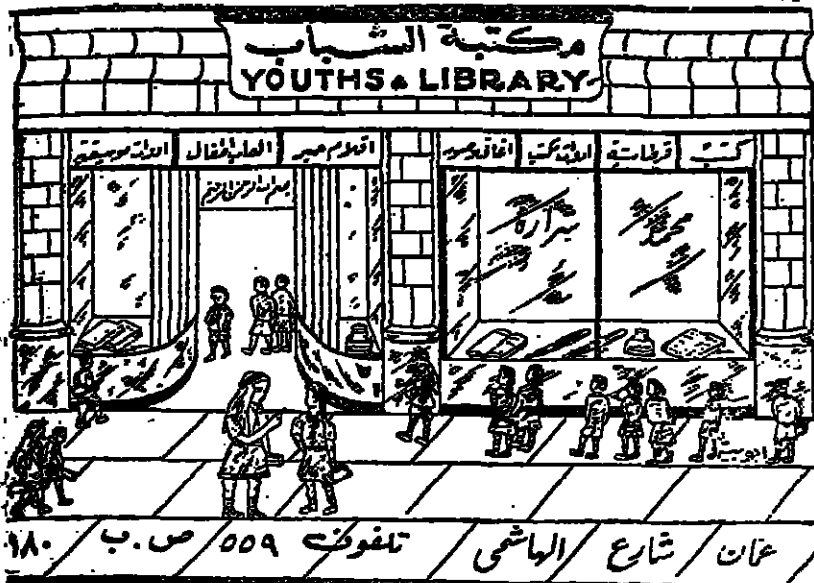 مكتبة الشباب
YOUTHS & LIBRARY
كتب قرطاسية ادوات مكتب
اقلام حبر العاب اطفال ادوات موسيقية
بسم الله الرحمن الرحيم
محمد شرارة
عمان / شارع الهاشمي تلفون ٥٥٩ ص.ب ١٨٠